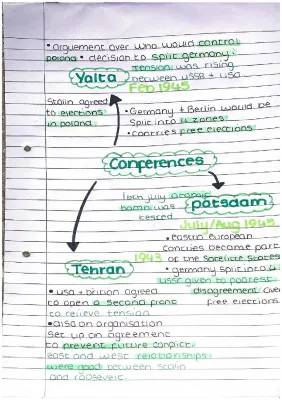 • arguement over who would control
poland • decision to split germany.
Tension was rising
Yalta
between USSR + USA
Feb 1945
Stalin agreed
to elections
in poland
• Germany + Berlin would be
split into 4 zones
• Contries free elections
Conferences
16th july atomic
bomb was
tested
Potsdam
July/Aug 1945
• eastern european
Contries became part
of the Satelite States
1943
Tehran
• germany split into 4
USSR given to poorest
• USA + britian agreed
to open a second front
to relieve tension
disagreement over
free elections
• also an organisation
Set up an agreement
to prevent future conflict
east and west relationships
were good between Stalin
and roosevelt.